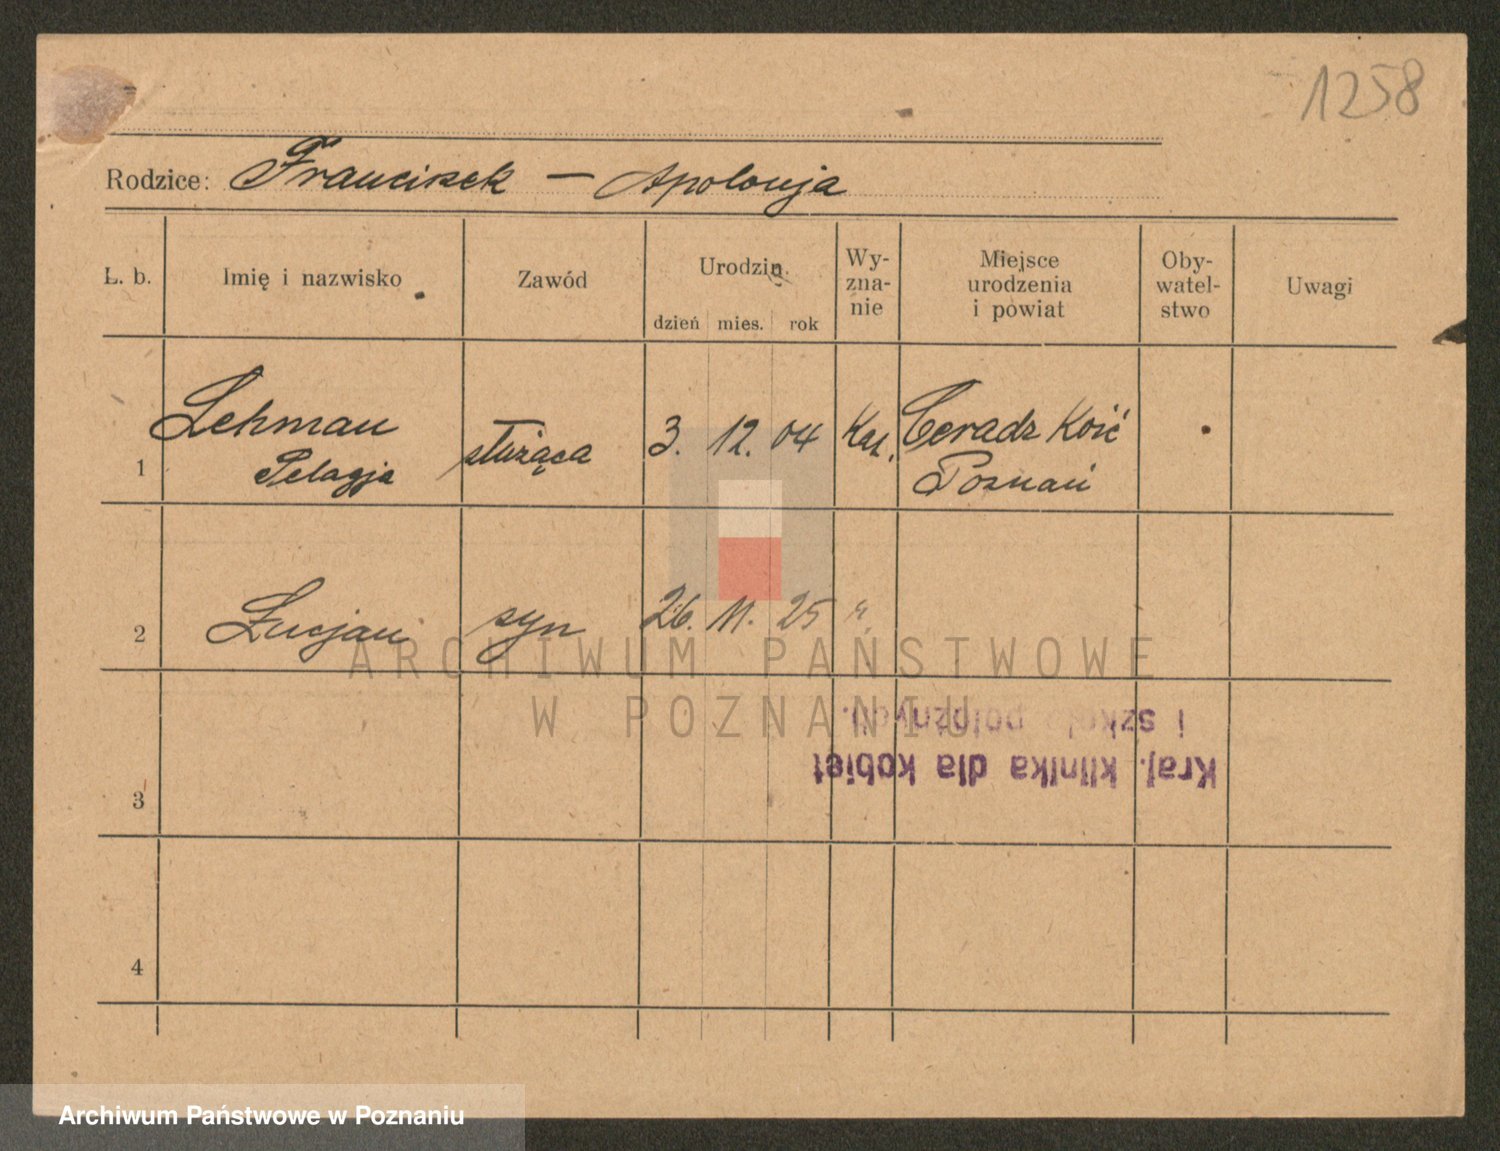 1258
Rodzice: Franciszek — Apolonja
L. b. Imię i nazwisko Zawód Urodzin. Wy-zna-nie Miejsce urodzenia i powiat Oby-watel-stwo Uwagi
dzień mies. rok
1 Lehman Pelagja służąca 3. 12. 04 Kat. Ceradz Kość Poznań
2 Łucjan syn 26. 11. 25 "
3
4
Kraj. klinika dla kobiet
i szkoła położnych.
ARCHIWUM PAŃSTWOWE
W POZNANIU
Archiwum Państwowe w Poznaniu